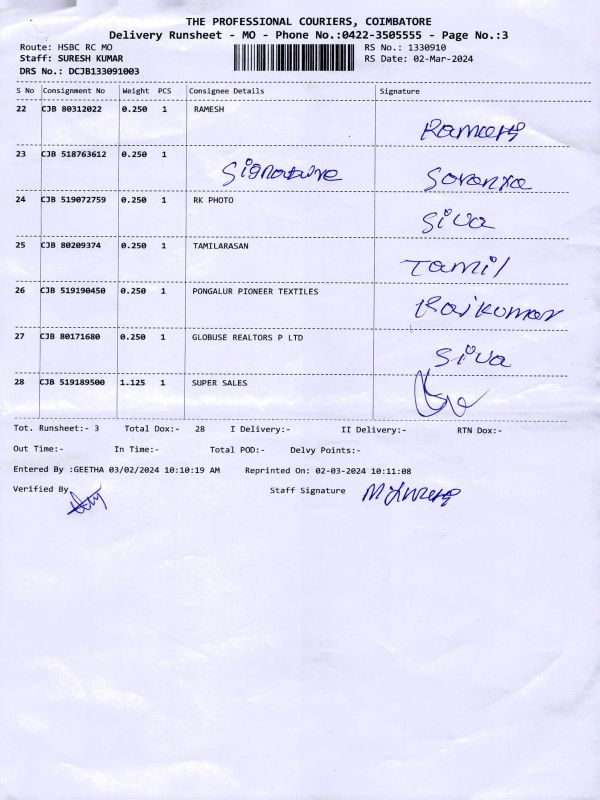 THE PROFESSIONAL COURIERS, COIMBATORE
Delivery Runsheet - MO - Phone No.:0422-3505555 - Page No.:3
Route: HSBC RC MO RS No.: 1330910
Staff: SURESH KUMAR RS Date: 02-Mar-2024
DRS No.: DCJB133091003
S No Consignment No Weight PCS Consignee Details Signature
22 CJB 80312022 0.250 1 RAMESH Ramesh
23 CJB 518763612 0.250 1 Signature
24 CJB 519072759 0.250 1 RK PHOTO Siva
25 CJB 80209374 0.250 1 TAMILARASAN Tamil
26 CJB 519190450 0.250 1 PONGALUR PIONEER TEXTILES Rajkumar
27 CJB 80171680 0.250 1 GLOBUSE REALTORS P LTD Siva
28 CJB 519189500 1.125 1 SUPER SALES
Tot. Runsheet:- 3 Total Dox:- 28 I Delivery:- II Delivery:- RTN Dox:-
Out Time:- In Time:- Total POD:- Delvy Points:-
Entered By :GEETHA 03/02/2024 10:10:19 AM Reprinted On: 02-03-2024 10:11:08
Verified By Staff Signature